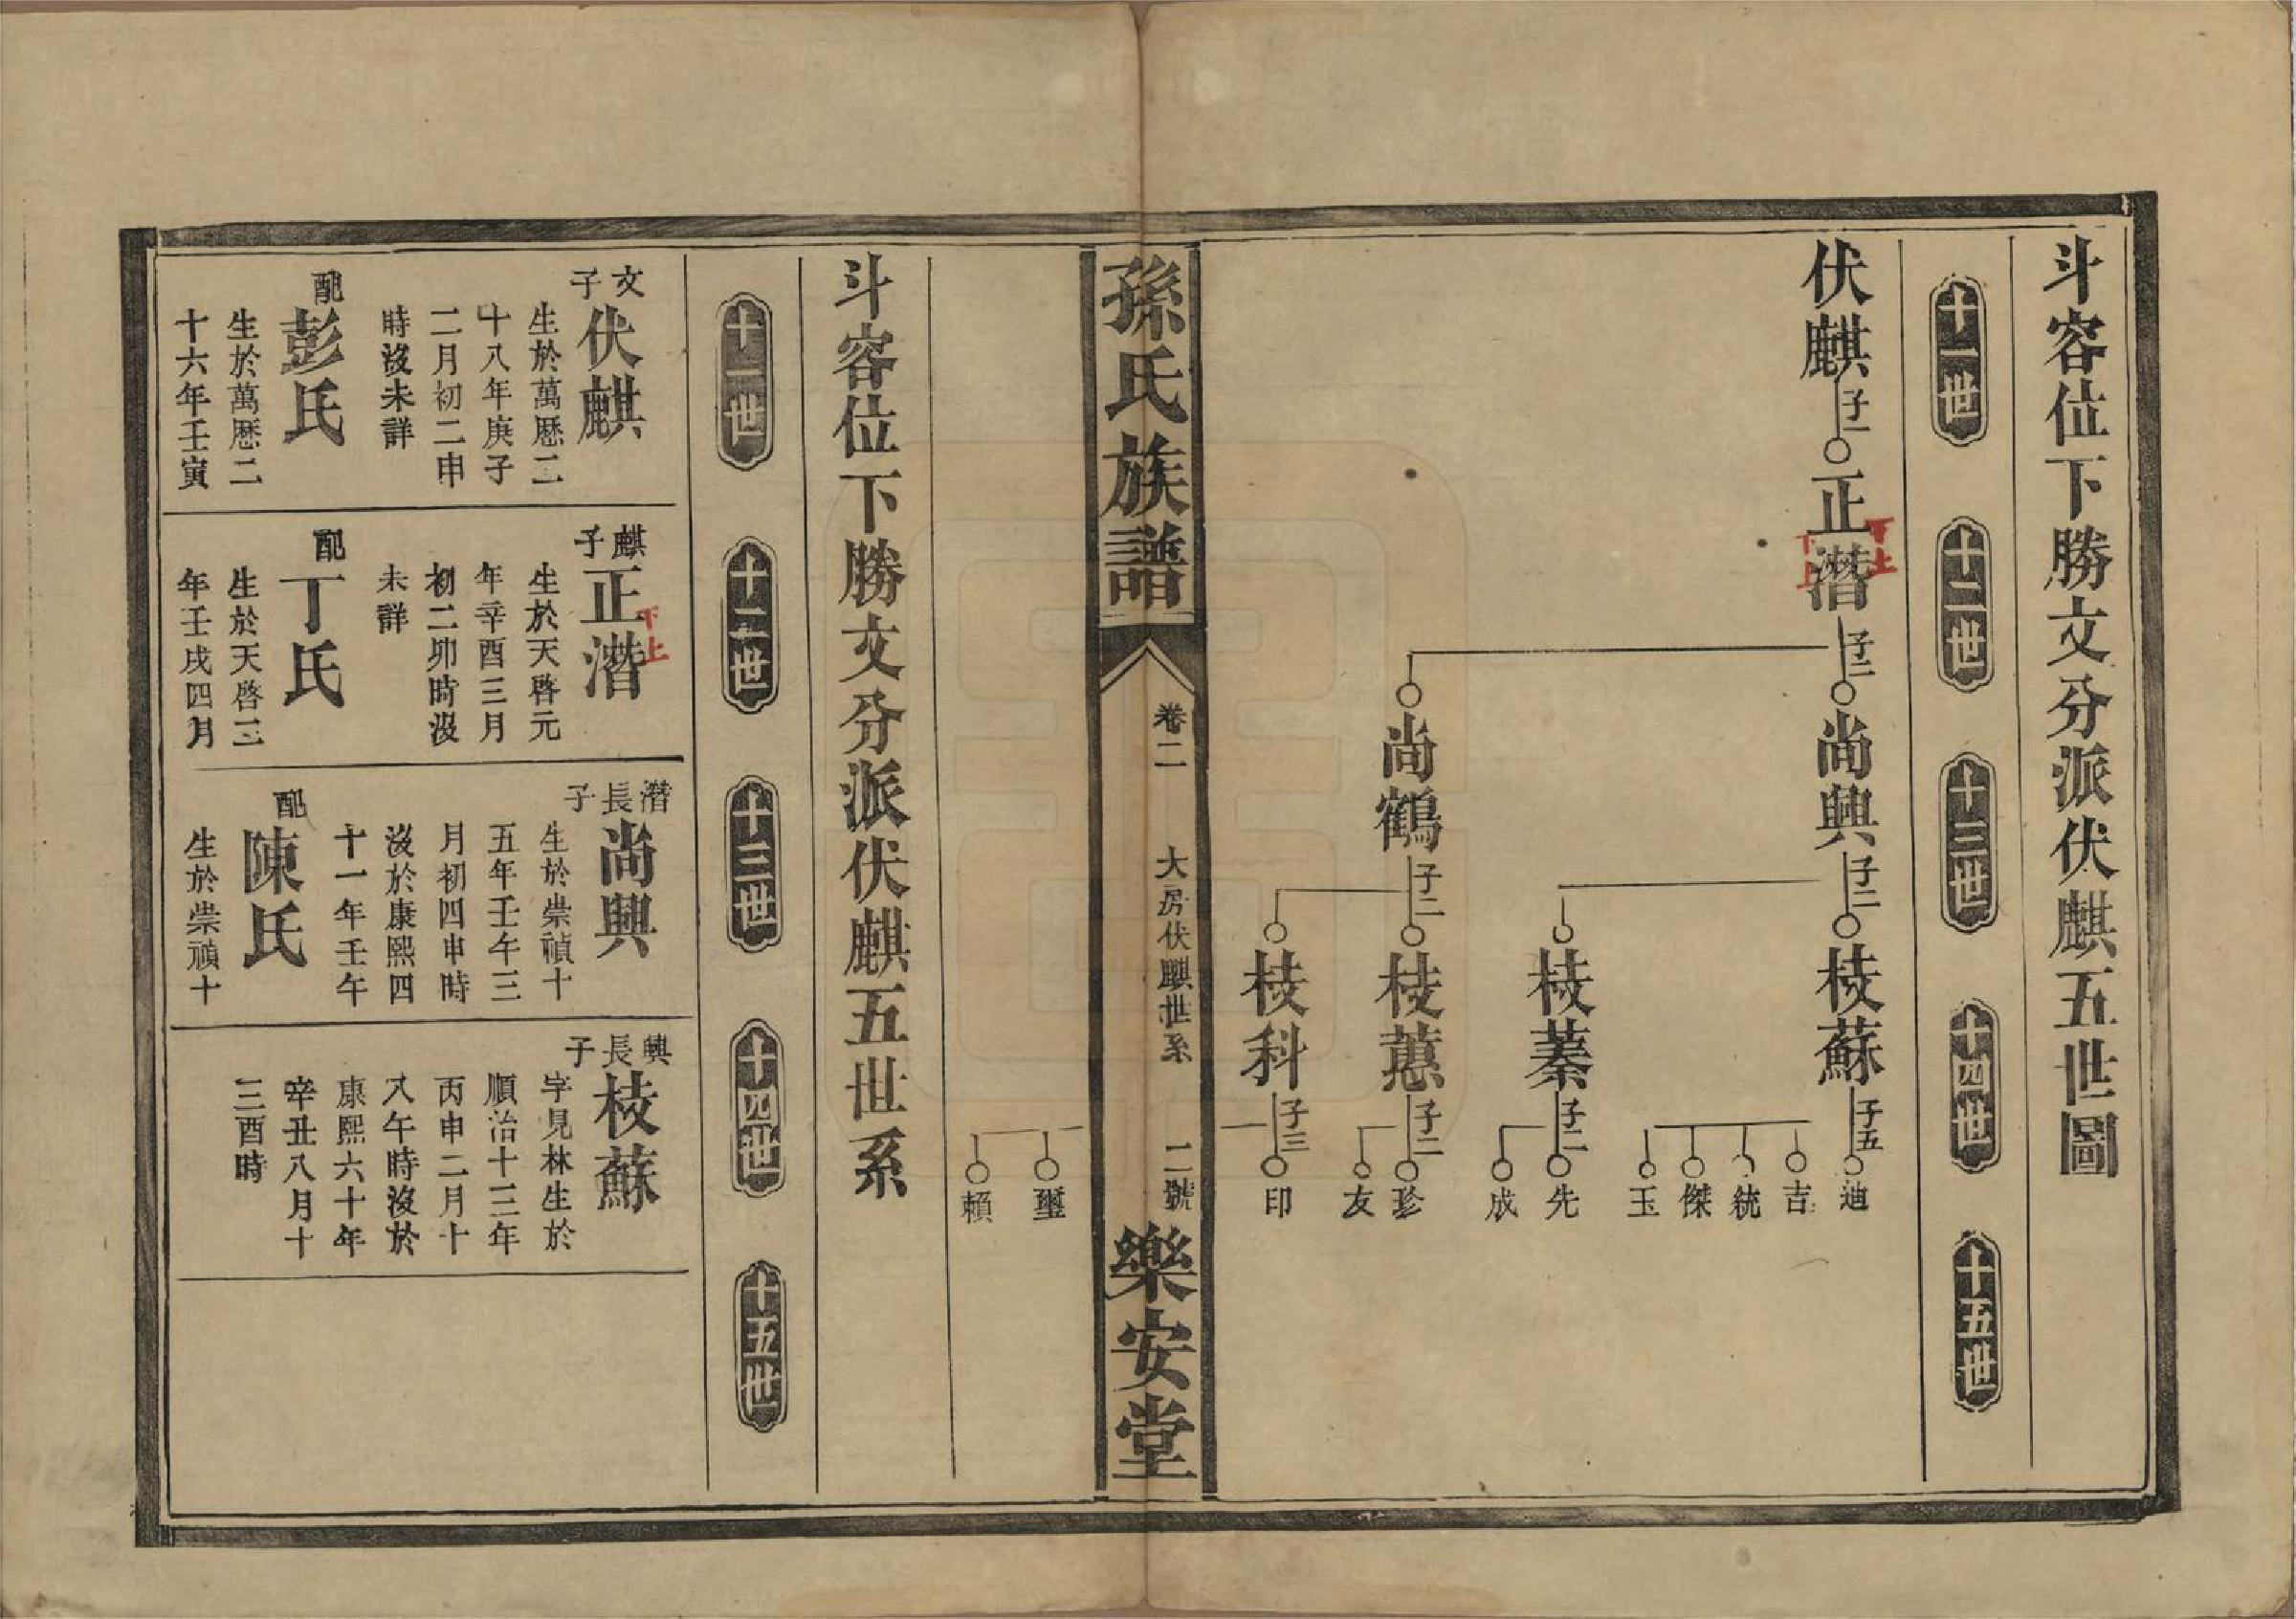 斗容位下勝文分派伏麒五世圖
十一世
十二世
十三世
十四世
十五世
伏麒
子一
正潛
下上
下上
子二
尚興
子二
枝蘇
子五
迪
吉
統
傑
玉
枝蓁
子二
先
成
尚鶴
子二
枝蕙
子二
珍
友
枝科
子三
印
孫氏族譜
卷二
大房伏麒世系
二號
樂安堂
璽
賴
斗容位下勝文分派伏麒五世系
十一世
十二世
十三世
十四世
十五世
文子
伏麒
生於萬歷二
十八年庚子
二月初二申
時沒未詳
配
彭氏
生於萬歷二
十六年壬寅
麒子
正潛
下上
生於天啓元
年辛酉三月
初二卯時沒
未詳
配
丁氏
生於天啓二
年壬戌四月
潛長子
尚興
生於崇禎十
五年壬午三
月初四申時
沒於康熙四
十一年壬午
配
陳氏
生於崇禎十
興長子
枝蘇
字見林生於
順治十三年
丙申二月十
八午時沒於
康熙六十年
辛丑八月十
三酉時